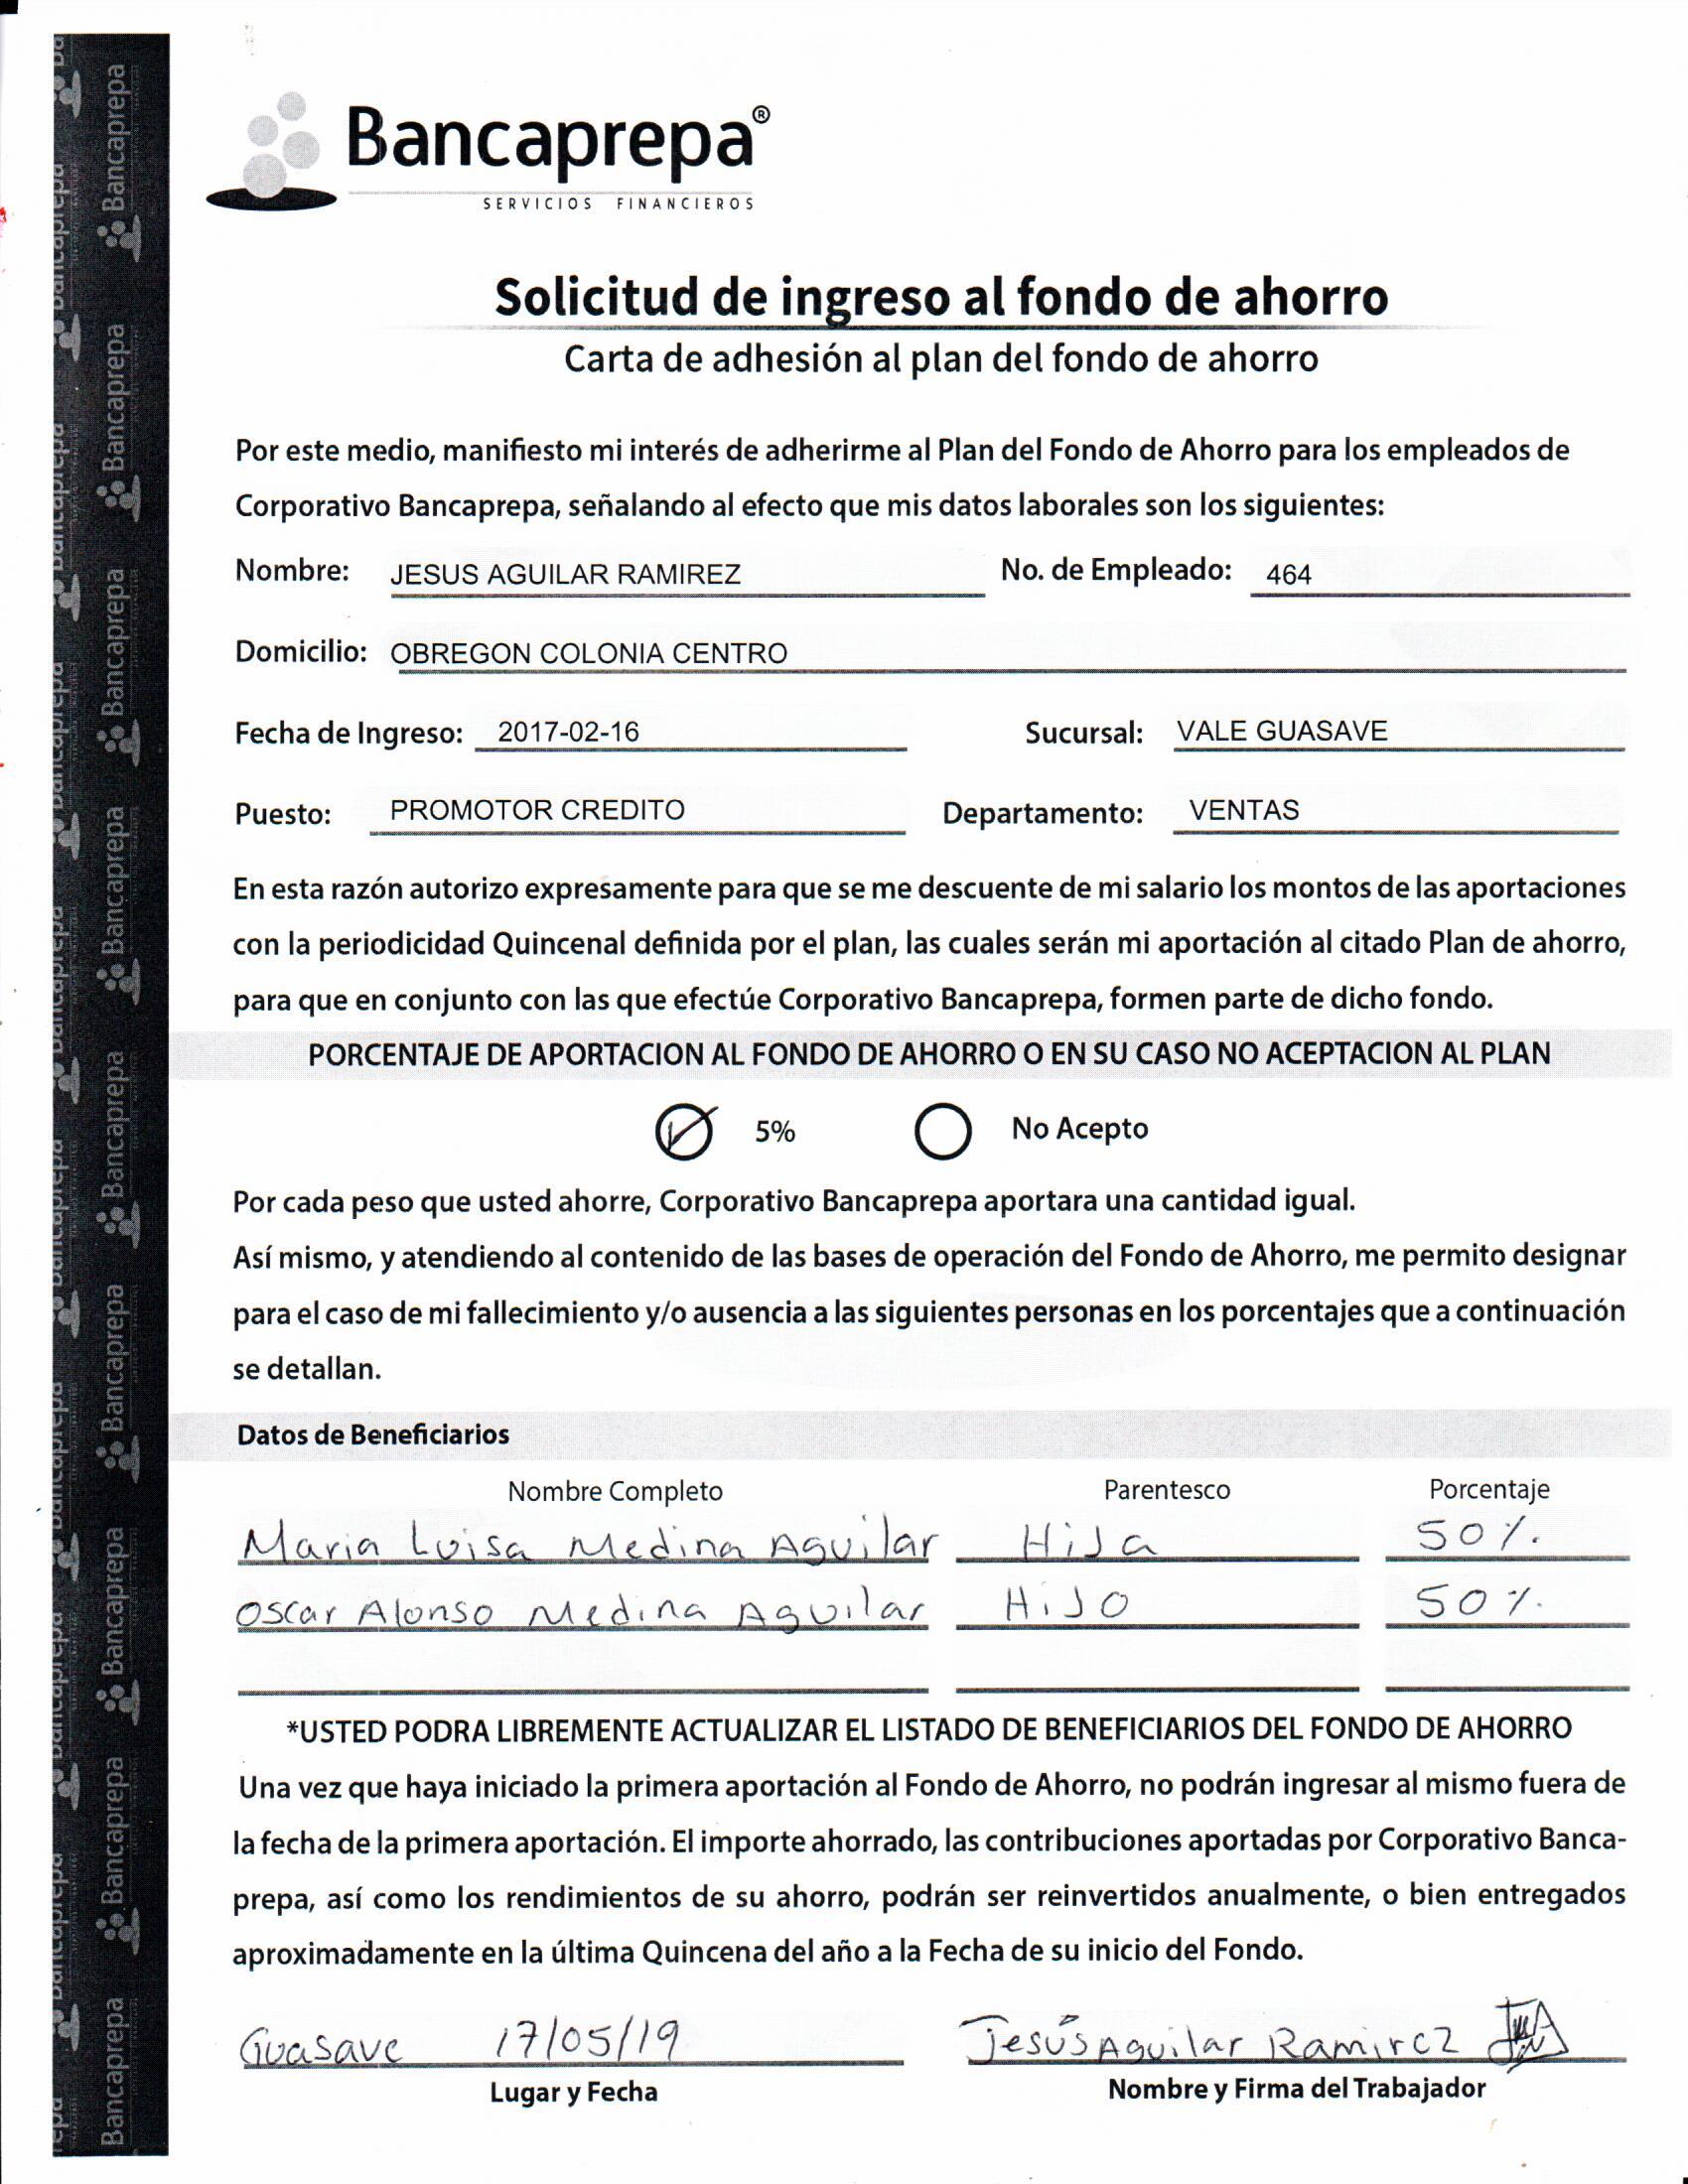 Bancaprepa®
SERVICIOS FINANCIEROS
Solicitud de ingreso al fondo de ahorro
Carta de adhesión al plan del fondo de ahorro
Por este medio, manifiesto mi interés de adherirme al Plan del Fondo de Ahorro para los empleados de
Corporativo Bancaprepa, señalando al efecto que mis datos laborales son los siguientes:
Nombre: JESUS AGUILAR RAMIREZ No. de Empleado: 464
Domicilio: OBREGON COLONIA CENTRO
Fecha de Ingreso: 2017-02-16 Sucursal: VALE GUASAVE
Puesto: PROMOTOR CREDITO Departamento: VENTAS
En esta razón autorizo expresamente para que se me descuente de mi salario los montos de las aportaciones
con la periodicidad Quincenal definida por el plan, las cuales serán mi aportación al citado Plan de ahorro,
para que en conjunto con las que efectúe Corporativo Bancaprepa, formen parte de dicho fondo.
PORCENTAJE DE APORTACION AL FONDO DE AHORRO O EN SU CASO NO ACEPTACION AL PLAN
5% No Acepto
Por cada peso que usted ahorre, Corporativo Bancaprepa aportara una cantidad igual.
Así mismo, y atendiendo al contenido de las bases de operación del Fondo de Ahorro, me permito designar
para el caso de mi fallecimiento y/o ausencia a las siguientes personas en los porcentajes que a continuación
se detallan.
Datos de Beneficiarios
Nombre Completo Parentesco Porcentaje
Maria Luisa Medina Aguilar HiJa 50%.
Oscar Alonso Medina Aguilar HiJO 50%.
*USTED PODRA LIBREMENTE ACTUALIZAR EL LISTADO DE BENEFICIARIOS DEL FONDO DE AHORRO
Una vez que haya iniciado la primera aportación al Fondo de Ahorro, no podrán ingresar al mismo fuera de
la fecha de la primera aportación. El importe ahorrado, las contribuciones aportadas por Corporativo Banca-
prepa, así como los rendimientos de su ahorro, podrán ser reinvertidos anualmente, o bien entregados
aproximadamente en la última Quincena del año a la Fecha de su inicio del Fondo.
Guasave 17/05/19 Jesús Aguilar Ramirez
Lugar y Fecha Nombre y Firma del Trabajador
Bancaprepa
Bancaprepa
Bancaprepa
Bancaprepa
Bancaprepa
Bancaprepa
Bancaprepa
Bancaprepa
Bancaprepa